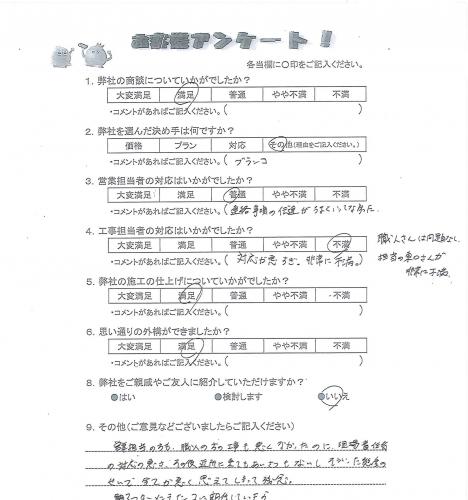 お客様アンケート!
各当欄に○印をご記入ください。
1. 弊社の商談についていかがでしたか?
大変満足 満足 普通 やや不満 不満
・コメントがあればご記入ください。( )
2. 弊社を選んだ決め手は何ですか?
価格 プラン 対応 その他(理由をご記入ください。)
・コメントがあればご記入ください。( ブランコ )
3. 営業担当者の対応はいかがでしたか?
大変満足 満足 普通 やや不満 不満
・コメントがあればご記入ください。( 連絡事項の伝達がうまくいってなかった。
4. 工事担当者の対応はいかがでしたか?
大変満足 満足 普通 やや不満 不満
・コメントがあればご記入ください。( 対応が悪すぎ。非常に不満。)
職人さんは問題なし。
担当の
さんが
非常に不満。
5. 弊社の施工の仕上げについていかがでしたか?
大変満足 満足 普通 やや不満 不満
・コメントがあればご記入ください。( )
6. 思い通りの外構ができましたか?
大変満足 満足 普通 やや不満 不満
・コメントがあればご記入ください。( )
8. 弊社をご親戚やご友人に紹介していただけますか?
はい 検討します いいえ
9. その他(ご意見などございましたらご記入ください)
担当の方も、職人の方の工事も悪くなかったのに、現場責任者
の対応の悪さ、その後近所に来てもあいさつもないし
せいで、全てが悪く思えてしまって残念。